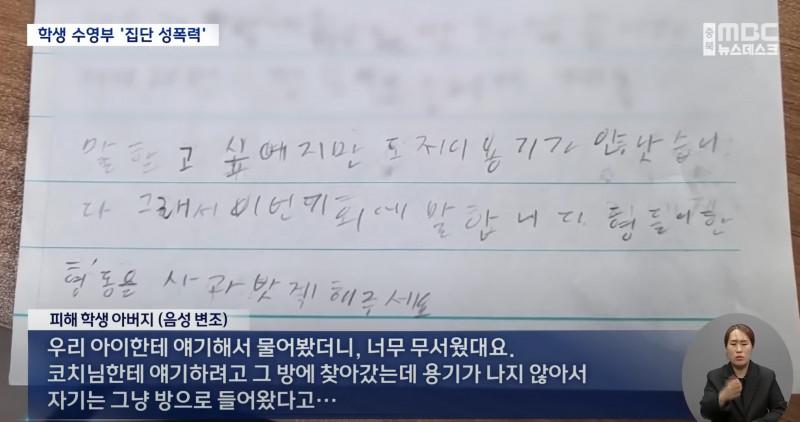 학생 수영부 '집단 성폭력'
충북
MBC
뉴스데스크
말하고 싶에지만 도저디 용기가 안낫습니
다 그래서 이번기회에 말합니다 형들이한
형동을 사과밧게해주세요
피해 학생 아버지 (음성 변조)
우리 아이한테 얘기해서 물어봤더니, 너무 무서웠대요.
코치님한테 얘기하려고 그 방에 찾아갔는데 용기가 나지 않아서
자기는 그냥 방으로 들어왔다고…